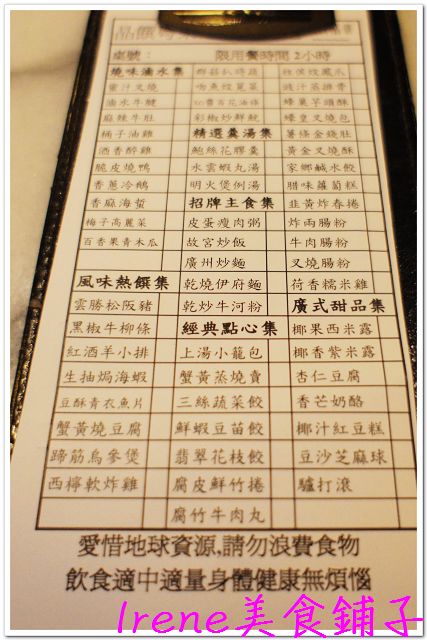 桌號： 限用餐時間2小時
燒味滷水集
蜜汁叉燒
滷水牛腱
麻辣牛肚
桶子油雞
酒香醉雞
脆皮燒鴨
香蔥冷鵝
香麻海蜇
梅子高麗菜
百香果青木瓜
風味熱饌集
雲勝松阪豬
黑椒牛柳條
紅酒羊小排
生抽焗海蝦
豆酥青衣魚片
蟹黃燒豆腐
蹄筋烏參煲
西檸軟炸雞
彩椒炒鮮魷
精選羹湯集
鮑絲花膠羹
水雲蝦丸湯
明火煲例湯
招牌主食集
皮蛋瘦肉粥
故宮炒飯
廣州炒麵
乾燒伊府麵
乾炒牛河粉
經典點心集
上湯小籠包
蟹黃蒸燒賣
三絲蔬菜餃
鮮蝦豆苗餃
翡翠花枝餃
腐皮鮮竹捲
腐竹牛肉丸
豉汁蒸排骨
蜂巢芋頭酥
蠔皇叉燒包
薯條金錢肚
黃金叉燒酥
家鄉鹹水餃
腊味蘿蔔糕
韭黃炸春捲
炸兩腸粉
牛肉腸粉
叉燒腸粉
荷香糯米雞
廣式甜品集
椰果西米露
椰香紫米露
杏仁豆腐
香芒奶酪
椰汁紅豆糕
豆沙芝麻球
驢打滾
愛惜地球資源,請勿浪費食物
飲食適中適量身體健康無煩惱
Irene美食鋪子